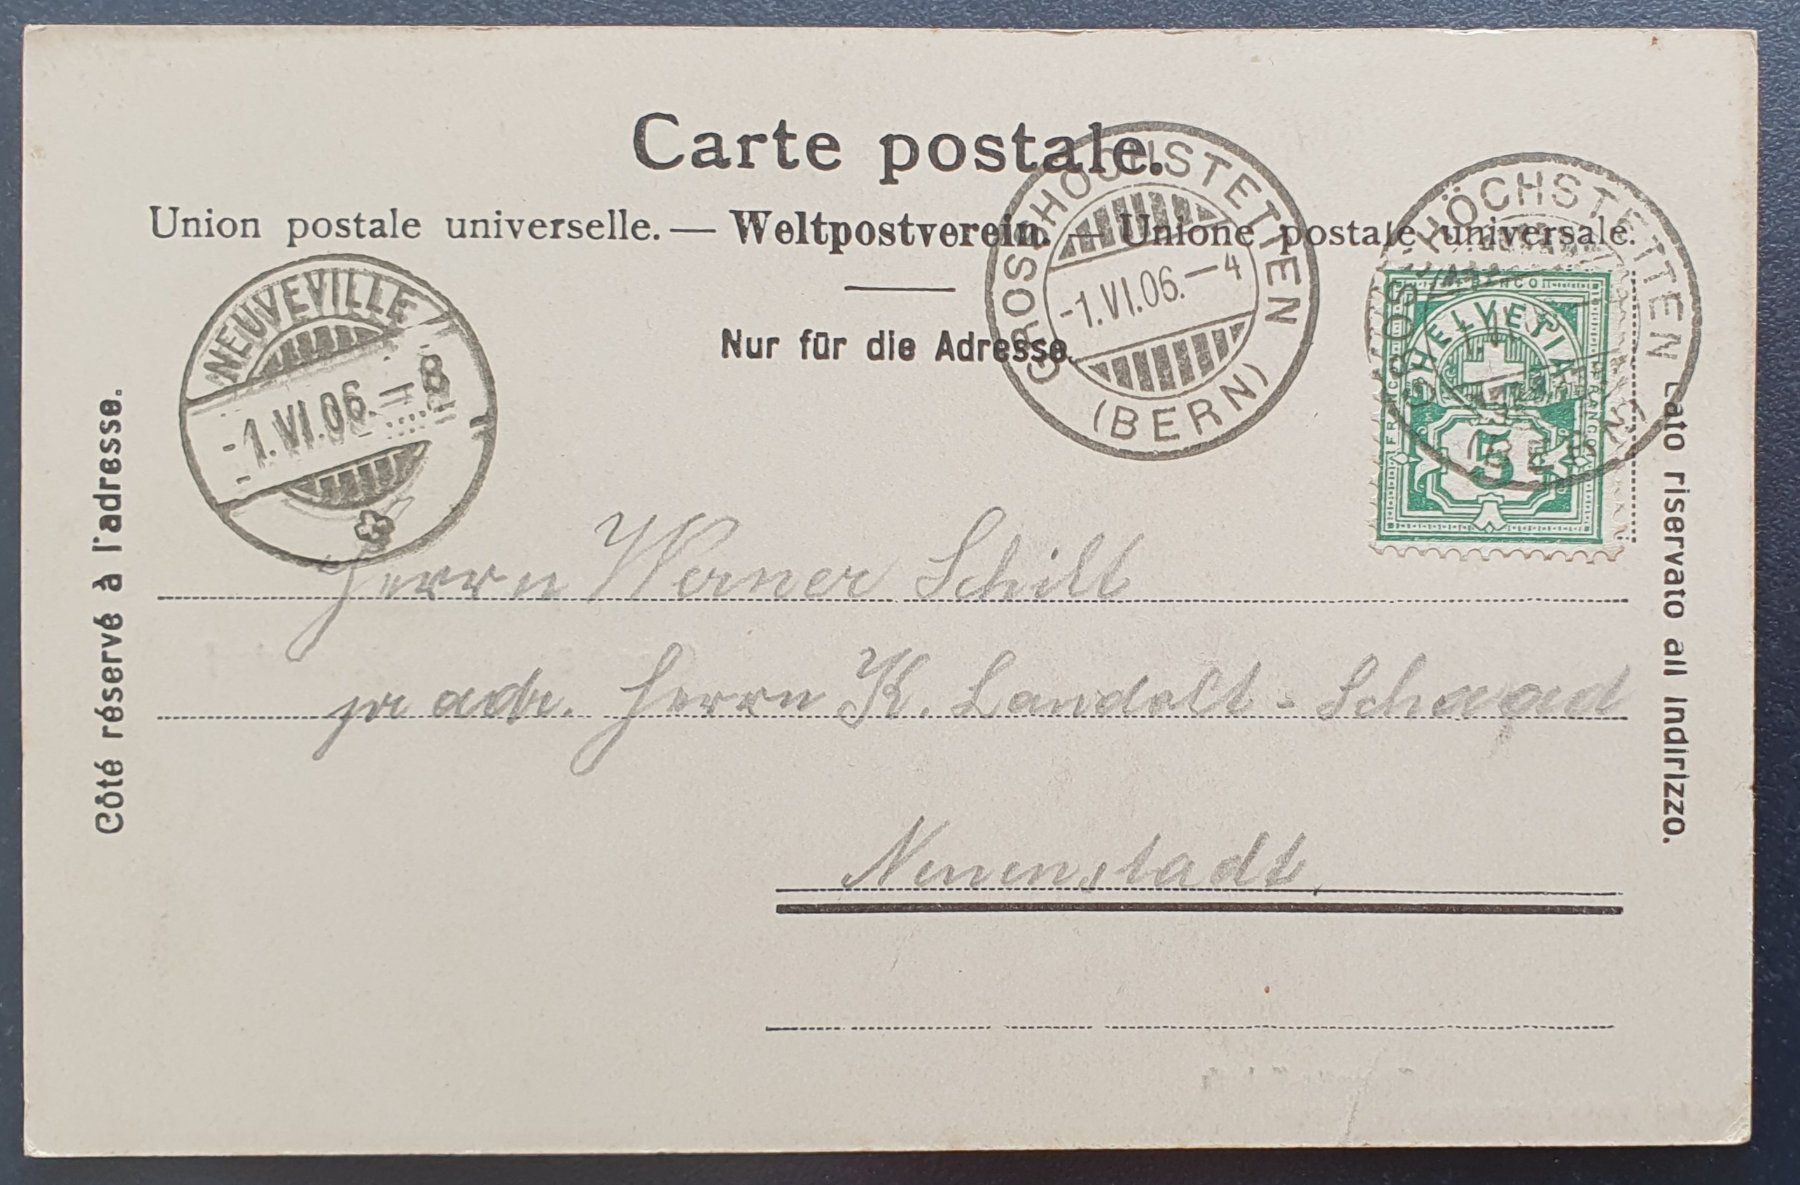 Carte postale.
Union postale universelle. — Weltpostverein. — Unione postale universale.
Nur für die Adresse.
Côté réservé à l'adresse.
Lato riservato all Indirizzo.
NEUVEVILLE
-1.VI.06.-8
GROSSHÖCHSTETTEN
-1.VI.06.-4
(BERN)
GROSSHÖCHSTETTEN
(BERN)
FRANCO
HELVETIA
FRANCO
FRANCO
5
Herrn Werner Schilt
pr adr. Herrn K. Landolt-Schaad
Neuenstadt.